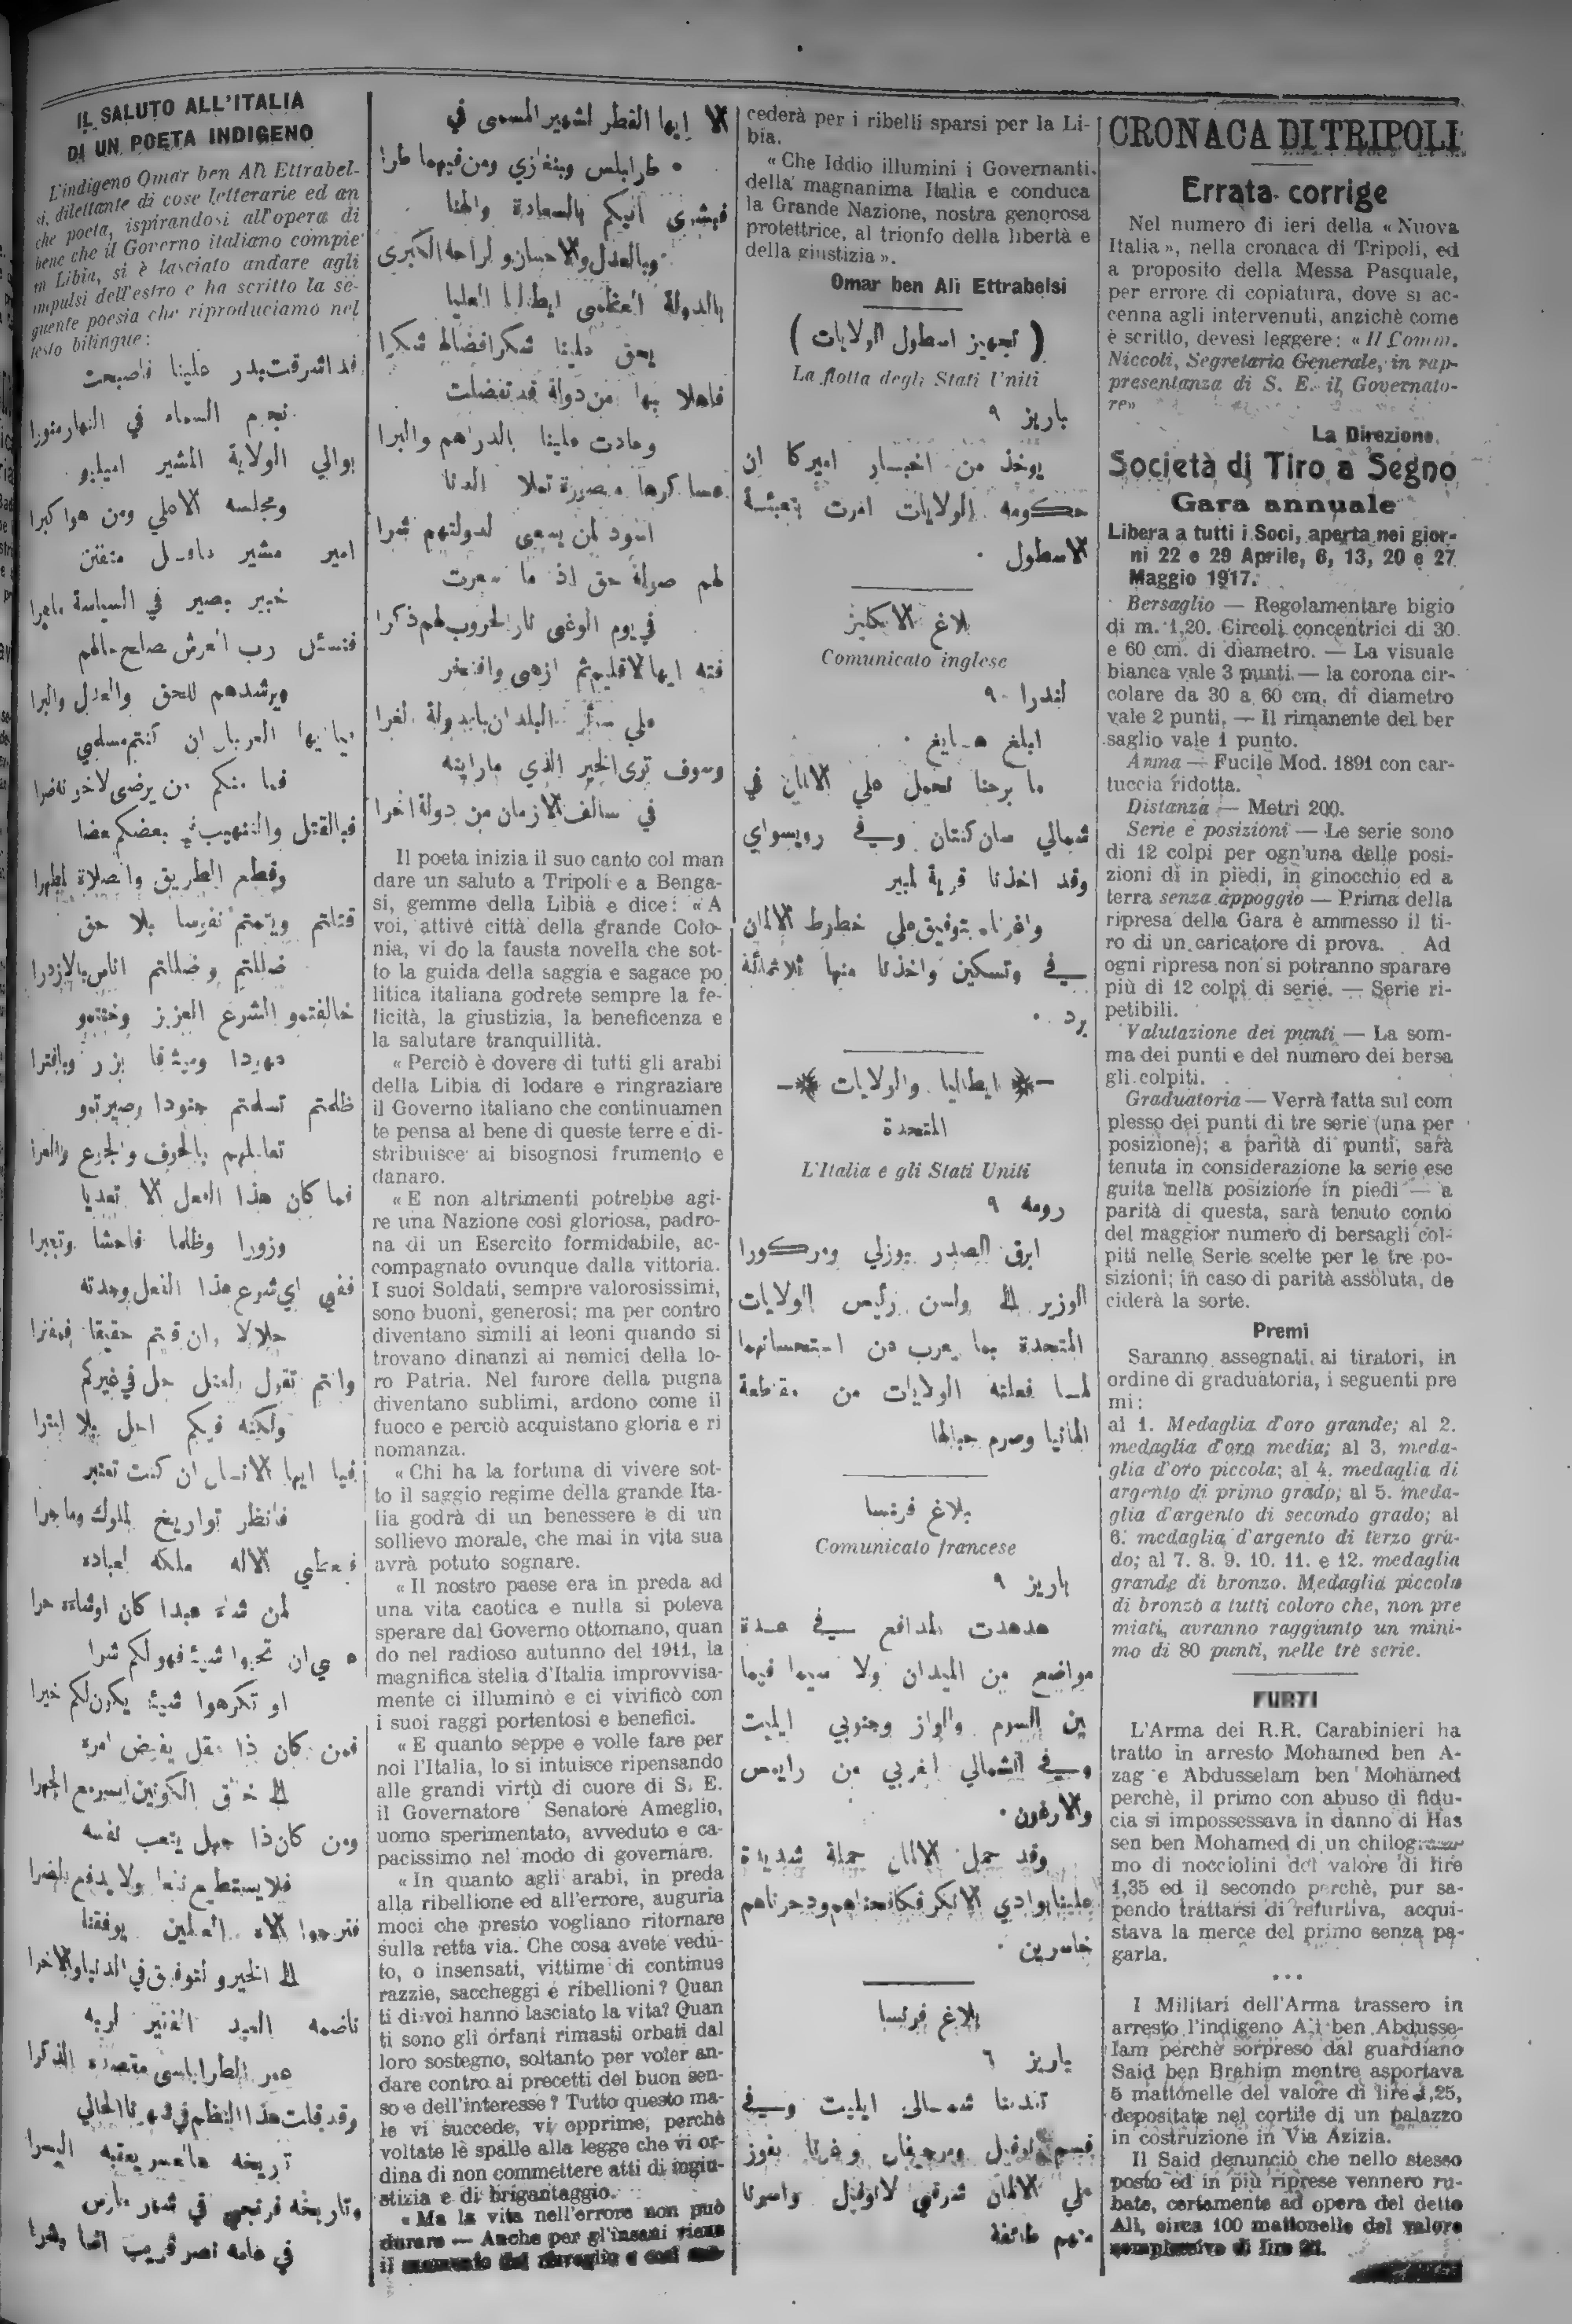 IL SALUTO ALL'ITALIA
DI UN POETA INDIGENO
L'indigeno Omar ben Alì Ettrabel-
si, dilettante di cose letterarie ed an
che poeta, ispirandosi all'opera di
bene che il Governo italiano compie
in Libia, si è lasciato andare agli
impulsi dell'estro e ha scritto la se-
guente poesia che riproduciamo nel
testo bilingue:
قد اشرقت بدر علينا فاصبحت
نجوم السماء في النهار منورا
بوالي الولاية المشير اميليو
ومجلسه الاعلي ومن هوا كبرا
امير مشير متقن
خبير بصير في السياسة ماهرا
فنسئل رب العرش صلح حالهم
ويرشدهم للحق والعدل والبرا
فما منكم من يرضى لاخر نضرا
فبالقتل والتنهيب بعضكم بعضا
وقطع الطريق
قتلتم ويتمتم نفوسا بلا حق
ضللتم وضللتم اناس بالازدرا
خالفتمو الشرع العزيز وخنتمو
ظلمتم تسلمتم جنودا وصيرتمو
فما كان هذا الفعل الا تعديا
وزورا وظلما فاحشا وتجبرا
ففي اي شرع هذا الفعل وجدته
وانتم تقول القتل حل في غيركم
ولكنه فيكم احل بلا امترا
فيا ايها الانسان ان كنت تعتبر
فانظر تواريخ الملوك وما جرا
فيعطي الاله ملكه لعباده
لمن شاء عبدا كان اوشاءه حرا
عسى ان تحبوا شيئا فهو لكم شرا
او تكرهوا شيئا يكون لكم خيرا
فمن كان ذا عقل يفوض امره
ومن كان ذا جهل يتعب نفسه
فلا يستطيع نفعا ولا يدفع بالضرا
فنرجوا الاه العلمين يوفقنا
الى الخير والتوفيق في الدنيا والاخرا
ناضمه العبد الفقير لربه
عمر الطرابلسى
وقد قيلت هذا النظم في شهرنا الحالي
وتاريخه فرنجي في شهر مارس
الا ايها القطر الشهير المسمى في
طرابلس وبنغازي ومن فيهما طرا
فبشرى اتيكم بالسعادة والهنا
وبالعدل والاحسان والراحة الكبرى
بالدولة العظمى ايطاليا العليا
يحق علينا شكر افضالها شكرا
فاهلا بها من دولة قد تفضلت
وجادت علينا بالدراهم والبرا
عساكرها منصورة تملا الدنا
اسود لمن يسعى لدولتهم شرا
لهم صولة حق اذ ما سعرت
في يوم الوغى نار الحروب لهم ذكرا
فته ايها الاقليم ثم ازهى وافتخر
على سائر البلدان بالدولة الغرا
وسوف ترى الخير الذي ما رايته
في سالف الازمان من دولة اخرا
Il poeta inizia il suo canto col man
dare un saluto a Tripoli e a Benga-
si, gemme della Libia e dice: « A
voi, attive città della grande Colo-
nia, vi do la fausta novella che sot-
to la guida della saggia e sagace po
litica italiana godrete sempre la fe-
licità, la giustizia, la beneficenza e
la salutare tranquillità.
« Perciò è dovere di tutti gli arabi
della Libia di lodare e ringraziare
il Governo italiano che continuamen
te pensa al bene di queste terre e di-
stribuisce ai bisognosi frumento e
danaro.
« E non altrimenti potrebbe agi-
re una Nazione così gloriosa, padro-
na di un Esercito formidabile, ac-
compagnato ovunque dalla vittoria.
I suoi Soldati, sempre valorosissimi,
sono buoni, generosi; ma per contro
diventano simili ai leoni quando si
trovano dinanzi ai nemici della lo-
ro Patria. Nel furore della pugna
diventano sublimi, ardono come il
fuoco e perciò acquistano gloria e ri
nomanza.
« Chi ha la fortuna di vivere sot-
to il saggio regime della grande Ita-
lia godrà di un benessere e di un
sollievo morale, che mai in vita sua
avrà potuto sognare.
« Il nostro paese era in preda ad
una vita caotica e nulla si poteva
sperare dal Governo ottomano, quan
do nel radioso autunno del 1911, la
magnifica stella d'Italia improvvisa-
mente ci illuminò e ci vivificò con
i suoi raggi portentosi e benefici.
« E quanto seppe e volle fare per
noi l'Italia, lo si intuisce ripensando
alle grandi virtù di cuore di S. E.
il Governatore Senatore Ameglio,
uomo sperimentato, avveduto e ca-
pacissimo nel modo di governare.
« In quanto agli arabi, in preda
alla ribellione ed all'errore, auguria
moci che presto vogliano ritornare
sulla retta via. Che cosa avete vedu-
to, o insensati, vittime di continue
razzie, saccheggi e ribellioni? Quan
ti di voi hanno lasciato la vita? Quan
ti sono gli orfani rimasti orbati dal
loro sostegno, soltanto per voler an-
dare contro ai precetti del buon sen-
so e dell'interesse? Tutto questo ma-
le vi succede, vi opprime, perchè
voltate le spalle alla legge che vi or-
dina di non commettere atti di ingiu-
stizia e di brigantaggio.
« Ma la vita nell'errore non può
durare — Anche per gl'insani viene
il
cederà per i ribelli sparsi per la Li-
bia.
« Che Iddio illumini i Governanti
della magnanima Italia e conduca
la Grande Nazione, nostra genorosa
protettrice, al trionfo della libertà e
della giustizia ».
Omar ben Alì Ettrabelsi
( تجهيز اسطول الولايات )
La flotta degli Stati Uniti
باريز ٩
يوخذ من اخبار اميركا ان
حكومة الولايات امرت بتعبئة
الاسطول .
بلاغ الانكليز
Comunicato inglese
لندرا ٩٠
ابلغ هايغ .
ما برحنا نحمل علي الالمان في
شمالي سان كنتان وفي رويسواي
وقد اخذنا قرية لمبير
واغرنا بتوفيق على خطوط الالمان
في وتسكين واخذنا منها ثلاثمائة
يرد .
ايطاليا والولايات
المتحدة
L'Italia e gli Stati Uniti
رومه ٩
ابرق الصدر بوزلي ومركورا
الوزير الى ولسن رئيس الولايات
المتحدة بما يعرب عن استحسانهما
لما فعلته الولايات من مقاطعة
المانيا وصرم حبالها
بلاغ فرنسا
Comunicato francese
باريز ٩
هدهدت المدافع في عدة
مواضع من الميدان ولا سيما فيما
بين السوم والواز وجنوبي ايليت
وفي الشمالي الغربي من رايمس
والارغون .
وقد حمل الالمان حملة شديدة
علينا بوادي الانكر فكافحناهم ودحرناهم
خاسرين .
بلاغ فرنسا
باريز ٦
تقدمنا شمالى ايليت وفي
لافيل ومرجيفال وغرنا بفوز
على الالمان شرقي لانوفيل واسرنا
منهم طائفة
CRONACA DI TRIPOLI
Errata corrige
Nel numero di ieri della « Nuova
Italia », nella cronaca di Tripoli, ed
a proposito della Messa Pasquale,
per errore di copiatura, dove si ac-
cenna agli intervenuti, anzichè come
è scritto, devesi leggere: « Il Comm.
Niccoli, Segretario Generale, in rap-
presentanza di S. E. il Governato-
re»
La Direzione.
Società di Tiro a Segno
Gara annuale
Libera a tutti i Soci, aperta nei gior-
ni 22 e 29 Aprile, 6, 13, 20 e 27
Maggio 1917.
Bersaglio — Regolamentare bigio
di m. 1,20. Circoli concentrici di 30
e 60 cm. di diametro. — La visuale
bianca vale 3 punti — la corona cir-
colare da 30 a 60 cm. di diametro
vale 2 punti. — Il rimanente del ber
saglio vale 1 punto.
Arma — Fucile Mod. 1891 con car-
tuccia ridotta.
Distanza — Metri 200.
Serie e posizioni — Le serie sono
di 12 colpi per ogn'una delle posi-
zioni di in piedi, in ginocchio ed a
terra senza appoggio — Prima della
ripresa della Gara è ammesso il ti-
ro di un caricatore di prova. Ad
ogni ripresa non si potranno sparare
più di 12 colpi di serie. — Serie ri-
petibili.
Valutazione dei punti — La som-
ma dei punti e del numero dei bersa
gli colpiti.
Graduatoria — Verrà fatta sul com
plesso dei punti di tre serie (una per
posizione); a parità di punti, sarà
tenuta in considerazione la serie ese
guita nella posizione in piedi — a
parità di questa, sarà tenuto conto
del maggior numero di bersagli col-
piti nelle Serie scelte per le tre po-
sizioni; in caso di parità assoluta, de
ciderà la sorte.
Premi
Saranno assegnati ai tiratori, in
ordine di graduatoria, i seguenti pre
mi:
al 1. Medaglia d'oro grande; al 2.
medaglia d'oro media; al 3. meda-
glia d'oro piccola; al 4. medaglia di
argento di primo grado; al 5. meda-
glia d'argento di secondo grado; al
6. medaglia d'argento di terzo gra-
do; al 7. 8. 9. 10. 11. e 12. medaglia
grande di bronzo. Medaglia piccola
di bronzo a tutti coloro che, non pre
miati, avranno raggiunto un mini-
mo di 80 punti, nelle tre serie.
FURTI
L'Arma dei R.R. Carabinieri ha
tratto in arresto Mohamed ben A-
zag e Abdusselam ben Mohamed
perchè, il primo con abuso di fidu-
cia si impossessava in danno di Has
sen ben Mohamed di un
mo di nocciolini del valore di lire
1,35 ed il secondo perchè, pur sa-
pendo trattarsi di refurtiva, acqui-
stava la merce del primo senza pa-
garla.
...
I Militari dell'Arma trassero in
arresto l'indigeno Ali ben Abdusse-
lam perchè sorpreso dal guardiano
Said ben Brahim mentre asportava
5 mattonelle del valore di lire 1,25,
depositate nel cortile di un palazzo
in costruzione in Via Azizia.
Il Said denunciò che nello stesso
posto ed in più riprese vennero ru-
bate, certamente ad opera del detto
Ali, circa 100 mattonelle del valore
complessivo di lire